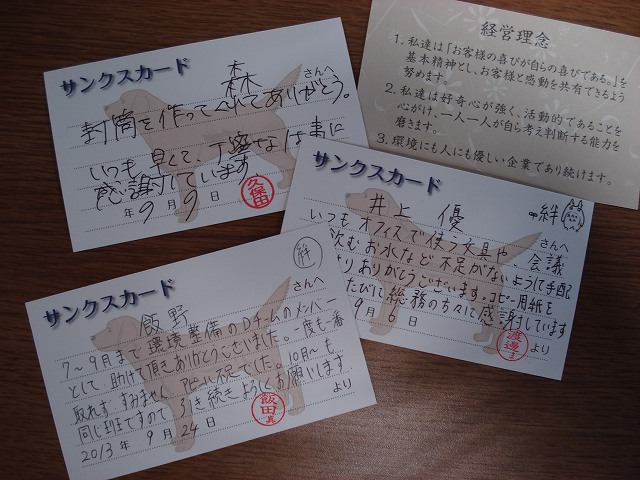 サンクスカード
森 さんへ
封筒を作ってくれてありがとう。
いつも早くて、丁寧な仕事に
感謝しています
年9月9日
久保田
経営理念
1. 私達は「お客様の喜びが自らの喜びである。」を
基本精神とし、お客様と感動を共有できるよう
努めます。
2. 私達は好奇心が強く、活動的であることを
心がけ、一人一人が自ら考え判断する能力を
磨きます。
3. 環境にも人にも優しい企業であり続けます。
サンクスカード
絆
井上 優 さんへ
いつもオフィスで使う文具や、会議
飲むお水など不足がないように手配
りありがとうございます。コピー用紙を
たびに総務の方々に感謝しています
9月6日
渡邊 より
サンクスカード
絆
飯野 さんへ
7〜9月まで環境整備のDチームのメンバー
として、助けて頂きありがとうございました。一度も一番
取れず、すみません、アピール不足でした。10月〜も
同じ班ですので引き続きよろしくお願いします。
飯田 より
2013年9月24日